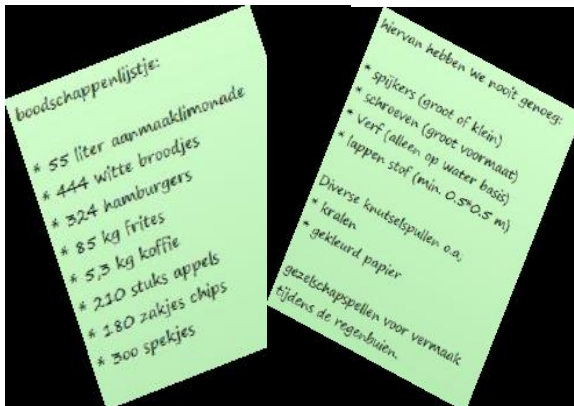 boodschappenlijstje:
* 55 liter aanmaaklimonade
* 444 witte broodjes
* 324 hamburgers
* 85 kg frites
* 5,3 kg koffie
* 210 stuks appels
* 180 zakjes chips
* 300 spekjes
hiervan hebben we nooit genoeg:
* spijkers (groot of klein)
* schroeven (groot voormaat)
* verf (alleen op water basis)
* lappen stof (min. 0.5*0.5 m)
Diverse knutselspullen o.a;
* kralen
* gekleurd papier
gezelschapspellen voor vermaak
tijdens de regenbuien.